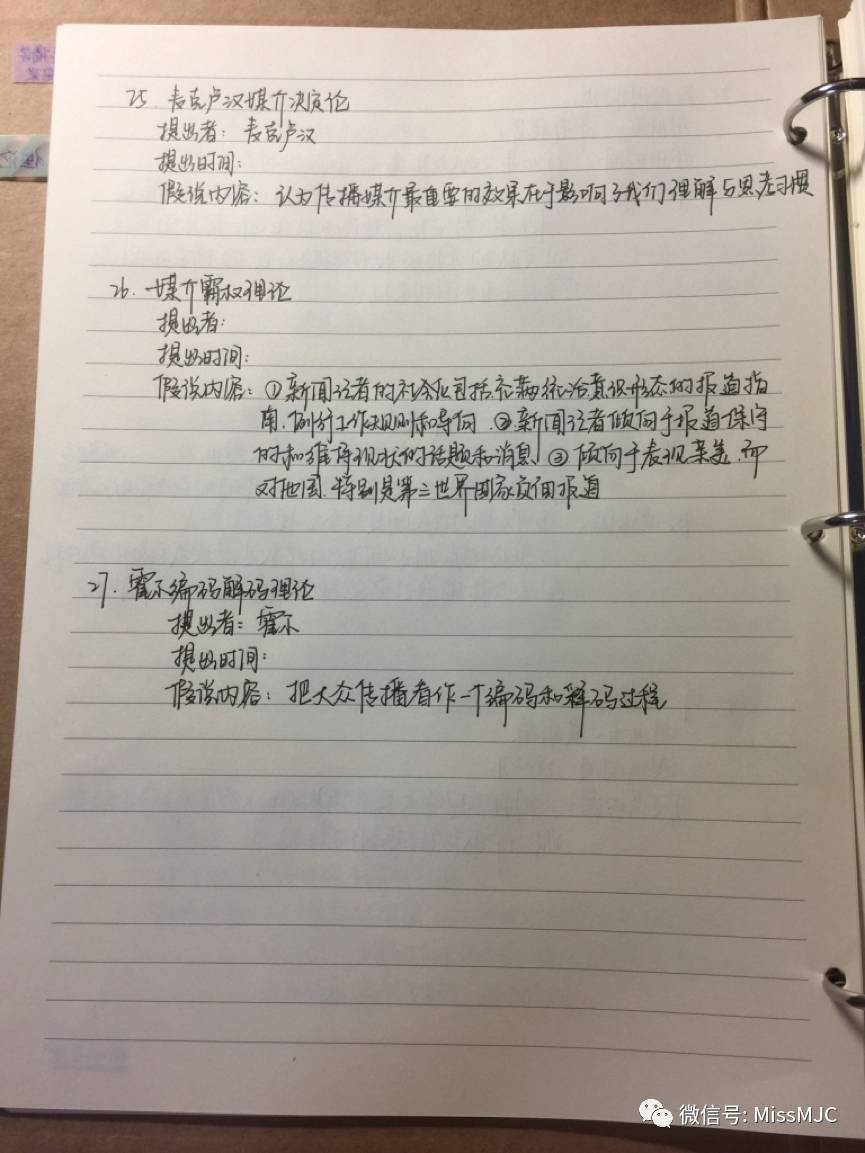 25. 麦克卢汉媒介决定论
提出者：麦克卢汉
提出时间：
假说内容：认为传播媒介最重要的效果在于影响了我们理解与思考习惯
26. 媒介霸权理论
提出者：
提出时间：
假说内容：①新闻记者的社会化包括充满统治意识形态的报道指
南、例行工作规则和导向。②新闻记者倾向于报道保守
的和维持现状的话题和消息 ③倾向于表现亲美，而
对他国、特别是第三世界国家负面报道
27. 霍尔编码解码理论
提出者：霍尔
提出时间：
假说内容：把大众传播看作一个编码和解码过程
微信号: MissMJC